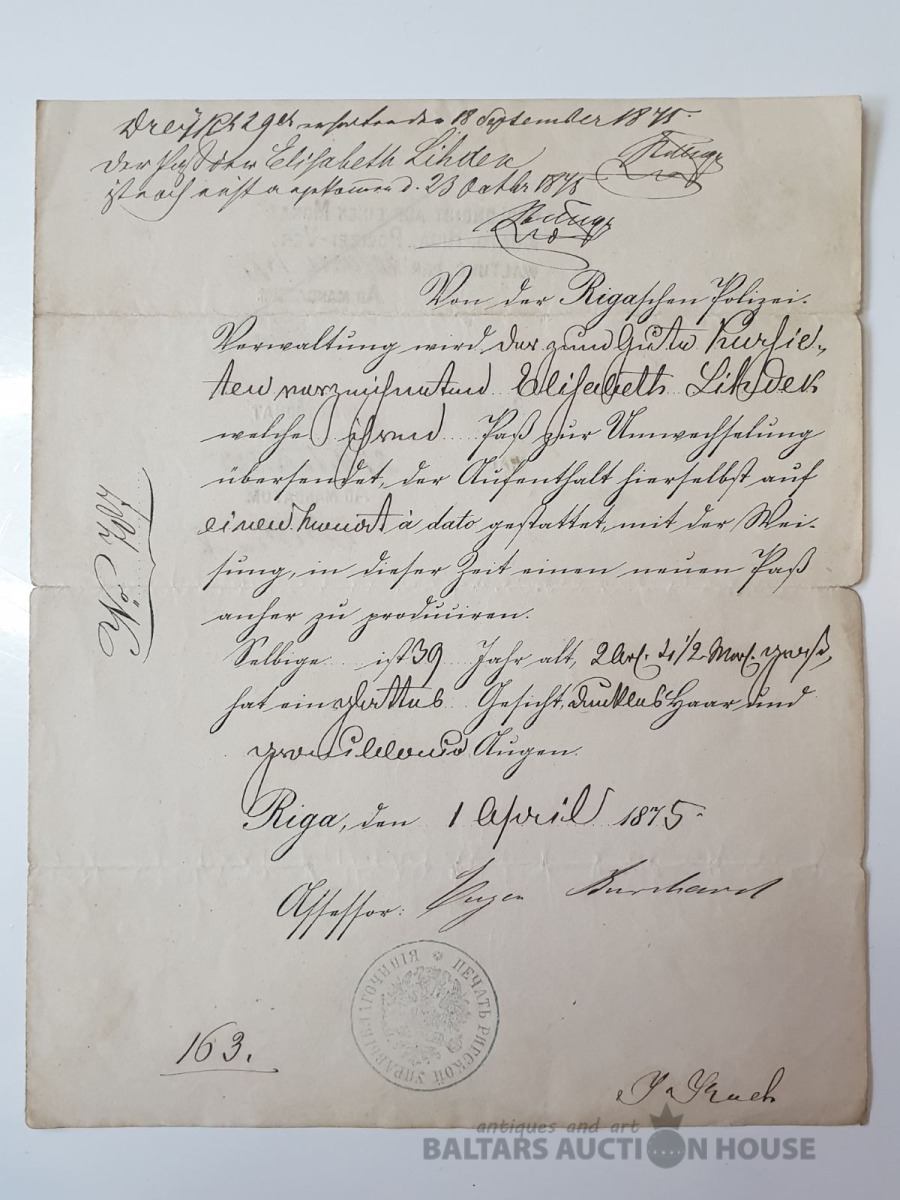 18 September 1875
Der Paß der Elisabeth Lihdek
ist noch nicht angekommen d. 23 Octbr 1875
Von der Rigaschen Polizei-
Verwaltung wird der zum Gute Kursie-
ten verzeichneten Elisabeth Lihdek
welche ihren Paß zur Umwechselung
übersendet, der Aufenthalt hierselbst auf
einen Monat à dato gestattet, mit der Wei-
sung, in dieser Zeit einen neuen Paß
anher zu produciren.
Selbige ist 39 Jahr alt, 2 Ars. 4 1/2 Wers. groß,
hat ein glattes Gesicht, dunkles Haar und
graublaue Augen.
Riga, den 1 April 1875
Assessor: Eugen Burchard
No.
ПЕЧАТЬ РИЖСКОЙ УПРАВЫ БЛАГОЧИНІЯ
163.
antiques and art
BALTARS AUCTION HOUSE